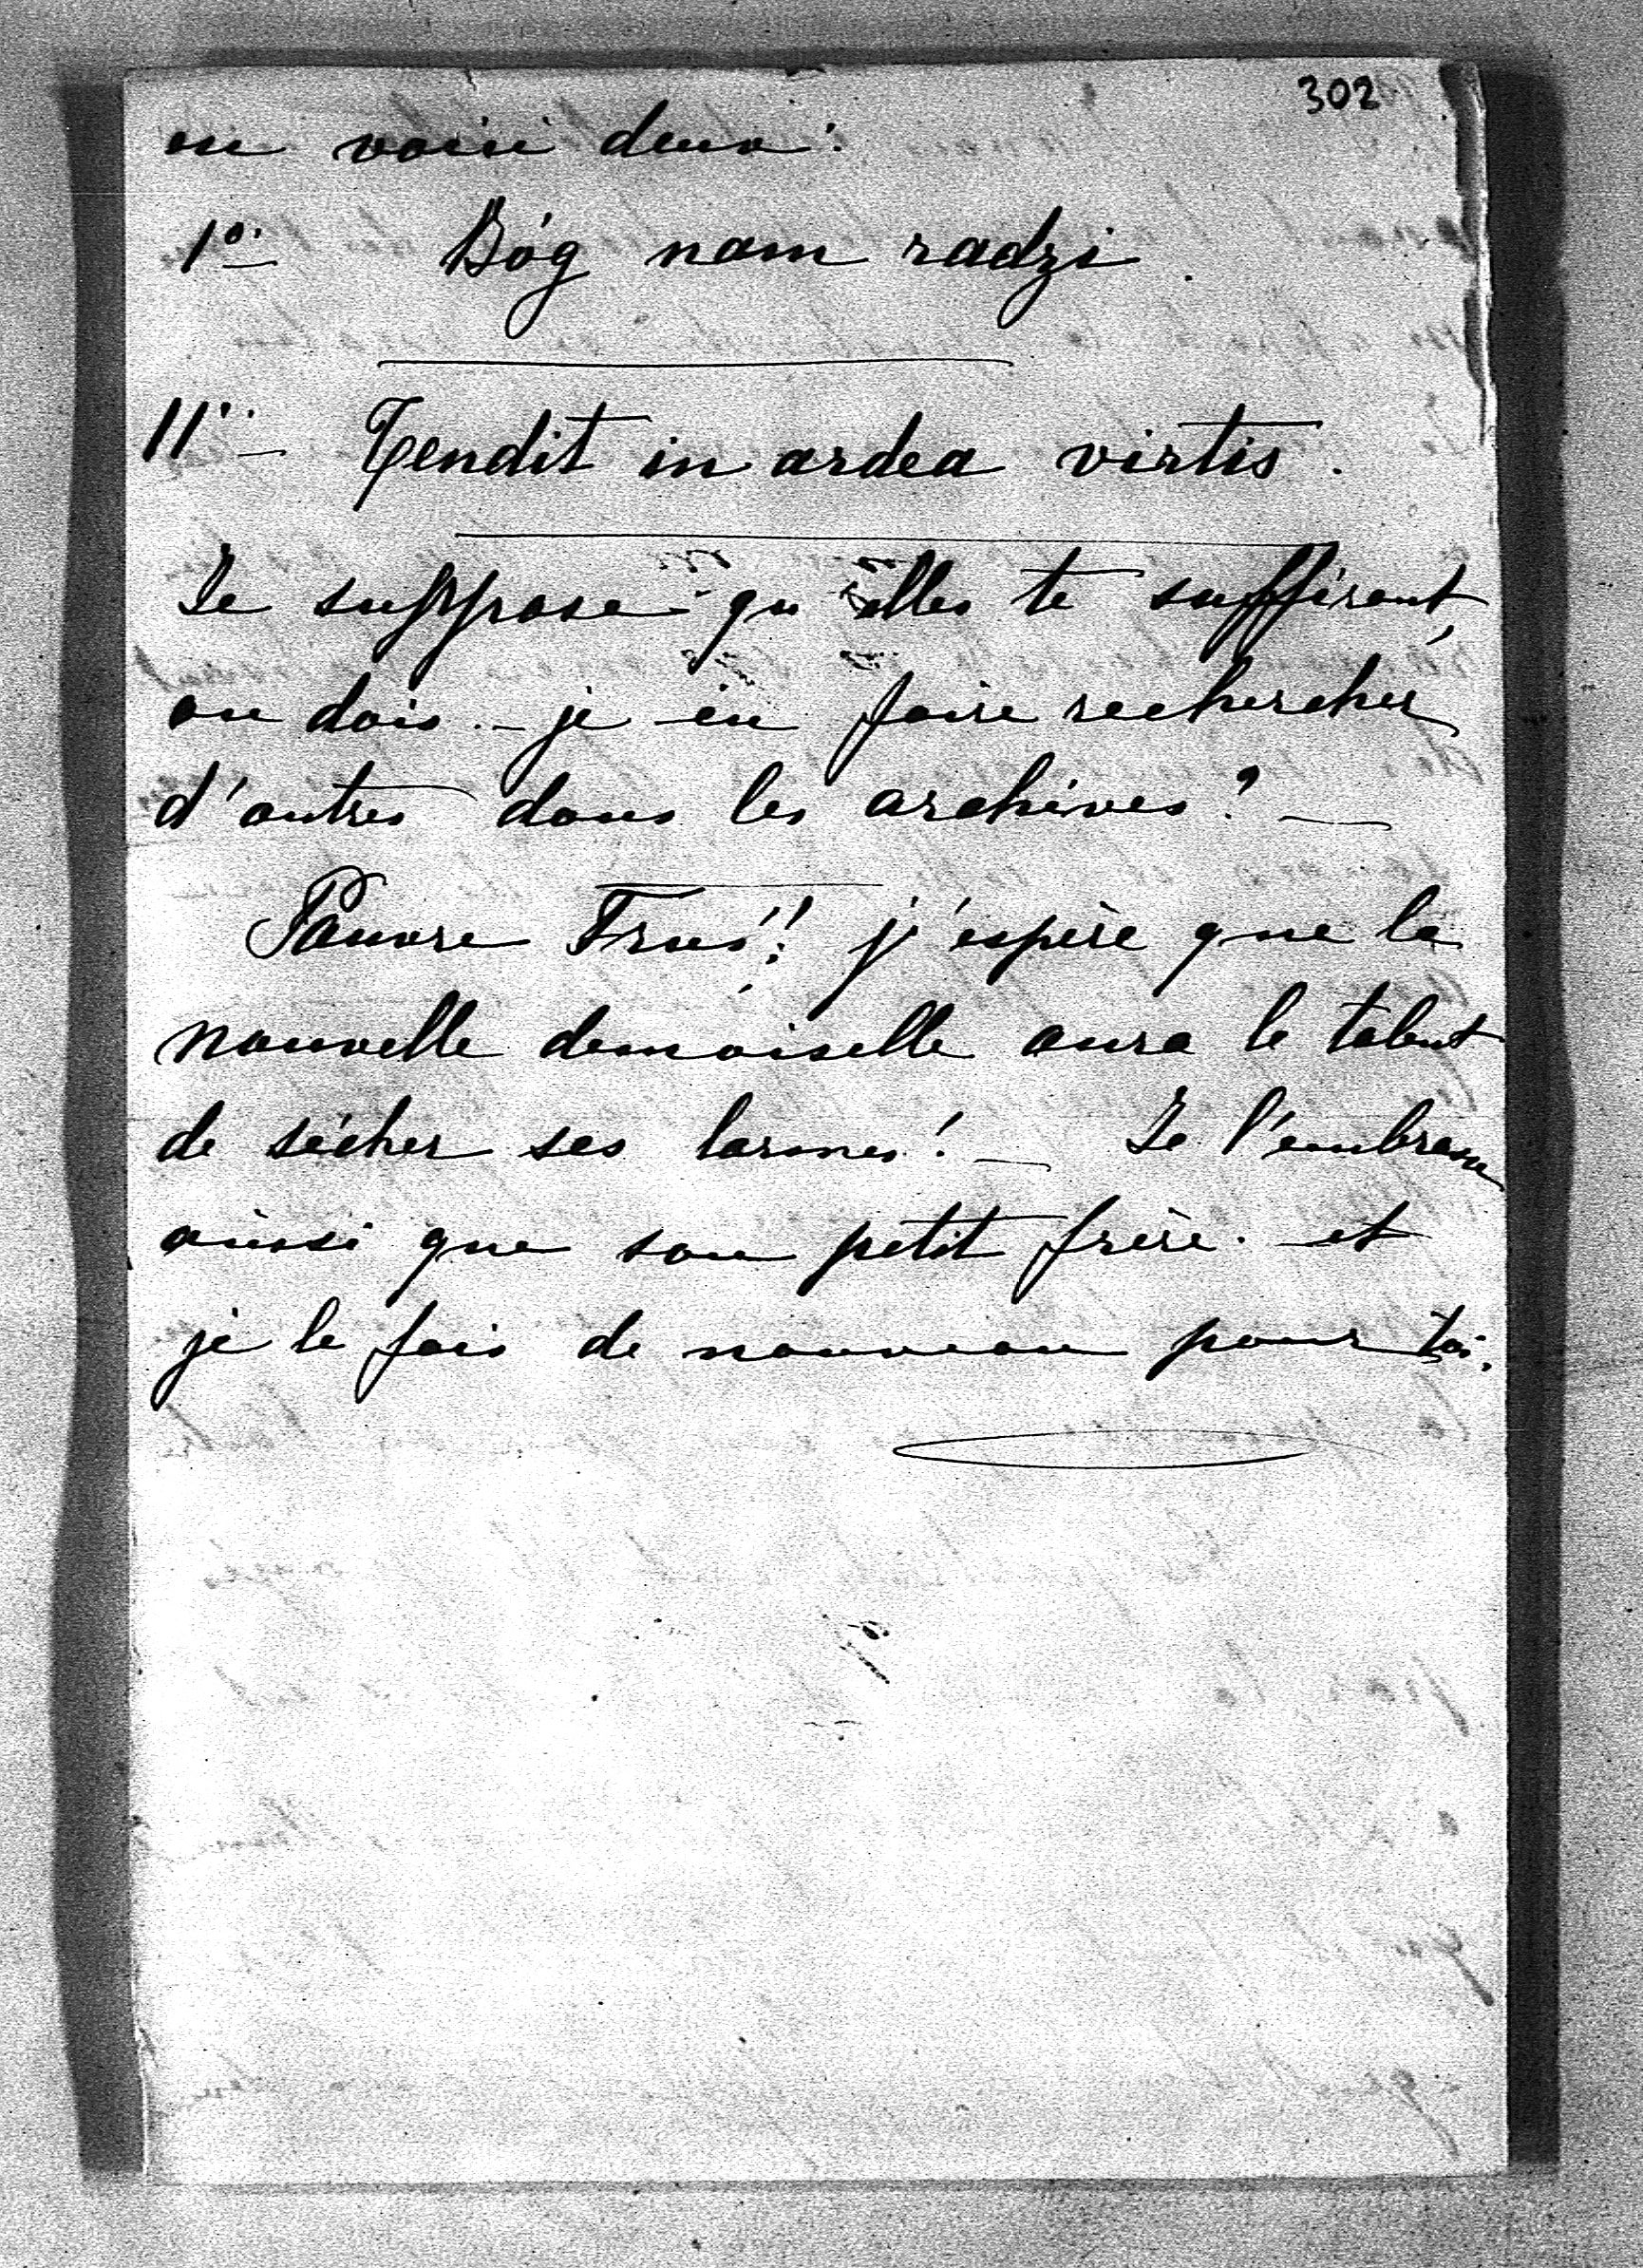 302
en voici deux:
1º: Bóg nam radzi.
II: Tendit in ardea virtis.
Je suppose qu'elles te suffiront,
ou dois-je en faire rechercher
d'autres dans les archives? —
Pauvre Truś! j'espère que la
nouvelle demoiselle aura le talent
de sécher ses larmes! — Je l'embrasse
ainsi que son petit frère. et
je le fais de nouveau pour toi.